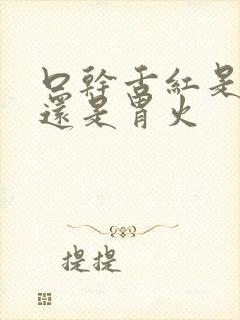 口幹舌紅是
還是胃火
提提